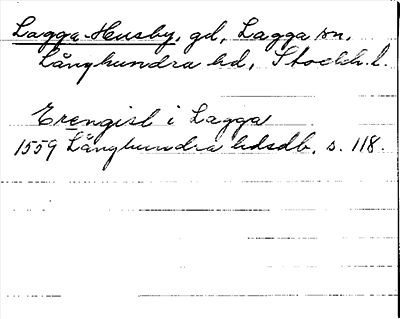 Lagga-Husby, gd, Lagga sn,
Långhundra hd, Stockh. l.
Erengisl i Lagga
1559 Långhundra hdsdb. s. 118.